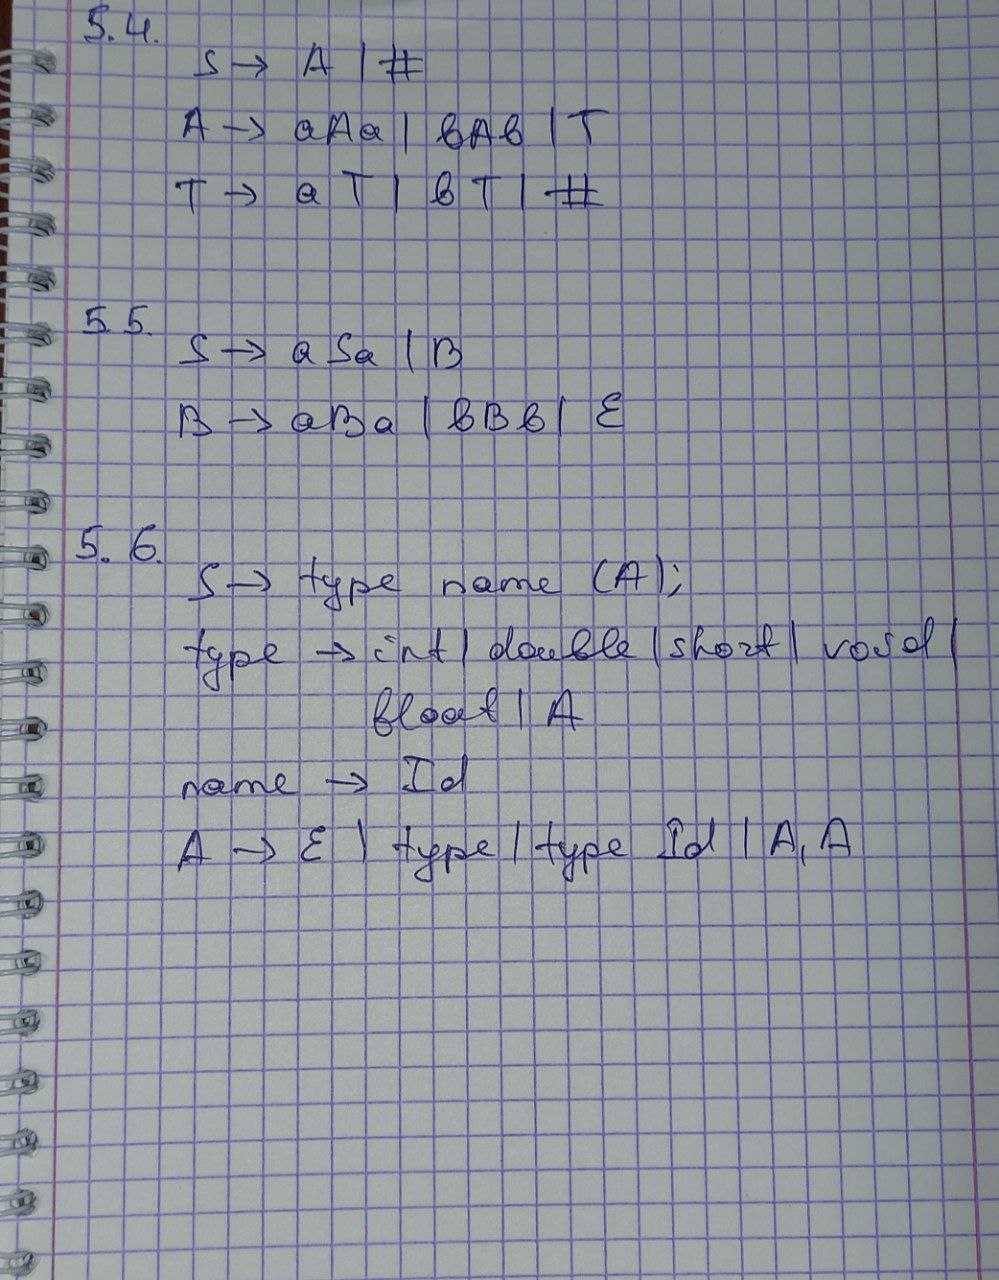 5.4.
S → A | #
A → aAa | bAb | T
T → aT | bT | #
5.5.
S → aSa | B
B → aBa | bBb | ε
5.6.
S → type name (A);
type → int | double | short | void |
float | A
name → Id
A → ε | type | type Id | A, A